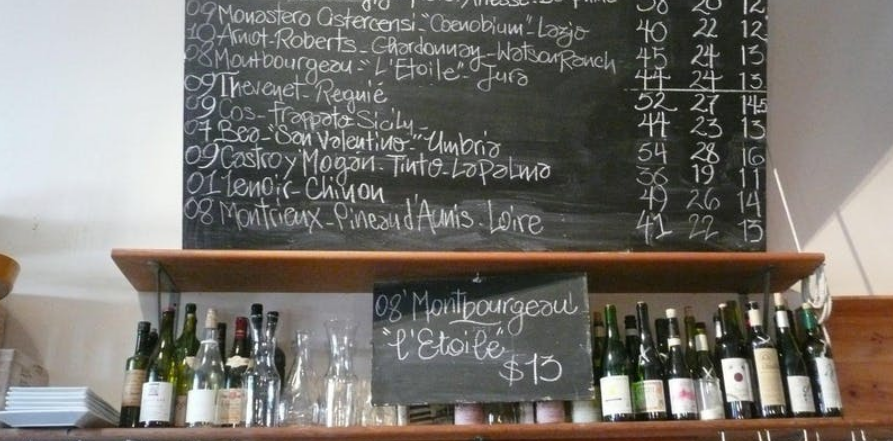 58 20 12
09 Monastero Cistercensi "Coenobium" - Lazio 40 22 12
10 Arnot-Roberts - Chardonnay - Watson Ranch 45 24 13
08 Montbourgeau - "L'Etoile" - Jura 44 24 13
09 Thevenet - Regnié 52 27 14.5
09 Cos - Frappato Sicily 44 23 13
07 Bea - "San Valentino" - Umbria 54 28 16
09 Castro y Magán - Tinto - La Palma 36 19 11
01 Lenoir - Chinon 49 26 14
08 Montrieux - Pineau d'Aunis - Loire 41 22 13
08' Montbourgeau
"l'Etoile"
$13